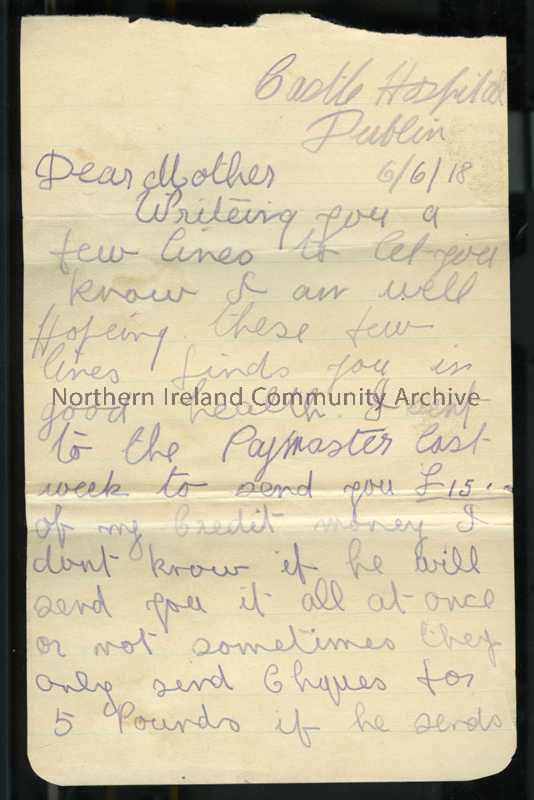 Castle Hospital
Dublin
6/6/18
Dear Mother
Writeing you a
few lines to let you
know I am well
Hopeing these few
lines finds you in
good health I
Northern Ireland Community Archive
to the Paymaster last
week to send you £15..
of my Credit money I
dont know if he will
send you it all at once
or not sometimes they
only send Chques for
5 Pounds if he sends